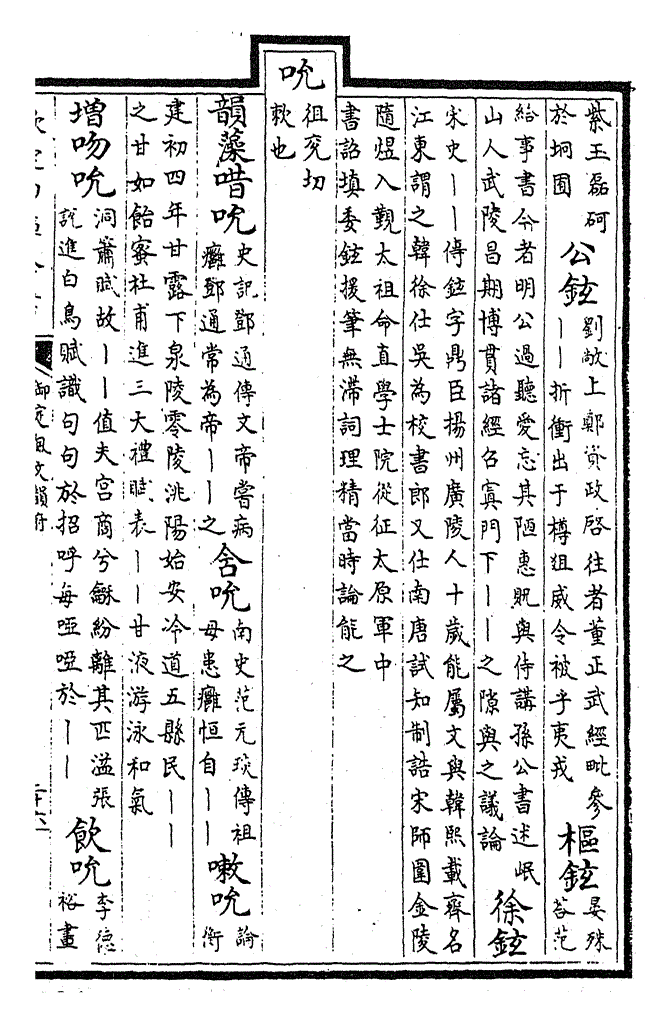 紫玉磊砢
於坰囿
公鉉
劉攽上鄭資政啓往者董正武經毗參
丨丨折衝出于樽俎威令被乎夷戎
樞鉉
晏殊
荅范
給事書今者明公過聽愛忘其陋惠貺與侍講孫公書述岷
山人武陵昌期博貫諸經召寘門下丨丨之隙與之議論
徐鉉
宋史丨丨傳鉉字鼎臣揚州廣陵人十歲能屬文與韓熙載齊名
江東謂之韓徐仕吳為校書郎又仕南唐試知制誥宋師圍金陵
隨煜入覲太祖命直學士院從征太原軍中
書詔填委鉉援筆無滯詞理精當時論能之
吮
徂兖切
欶也
韻藻
唶吮
史記鄧通傳文帝嘗病
癰鄧通常為帝丨丨之
含吮
南史范元琰傳祖
母患癰恒自丨丨
嗽吮
論
衡
建初四年甘露下泉陵零陵洮陽始安冷道五縣民丨丨
之甘如飴蜜杜甫進三大禮賦表丨丨甘液游泳和氣
增
吻吮
洞簫賦故丨丨值夫宫商兮龢紛離其匹溢張
説進白烏賦識句句於招呼每啞啞於丨丨
飲吮
李德
裕畫
御定佩文韻府